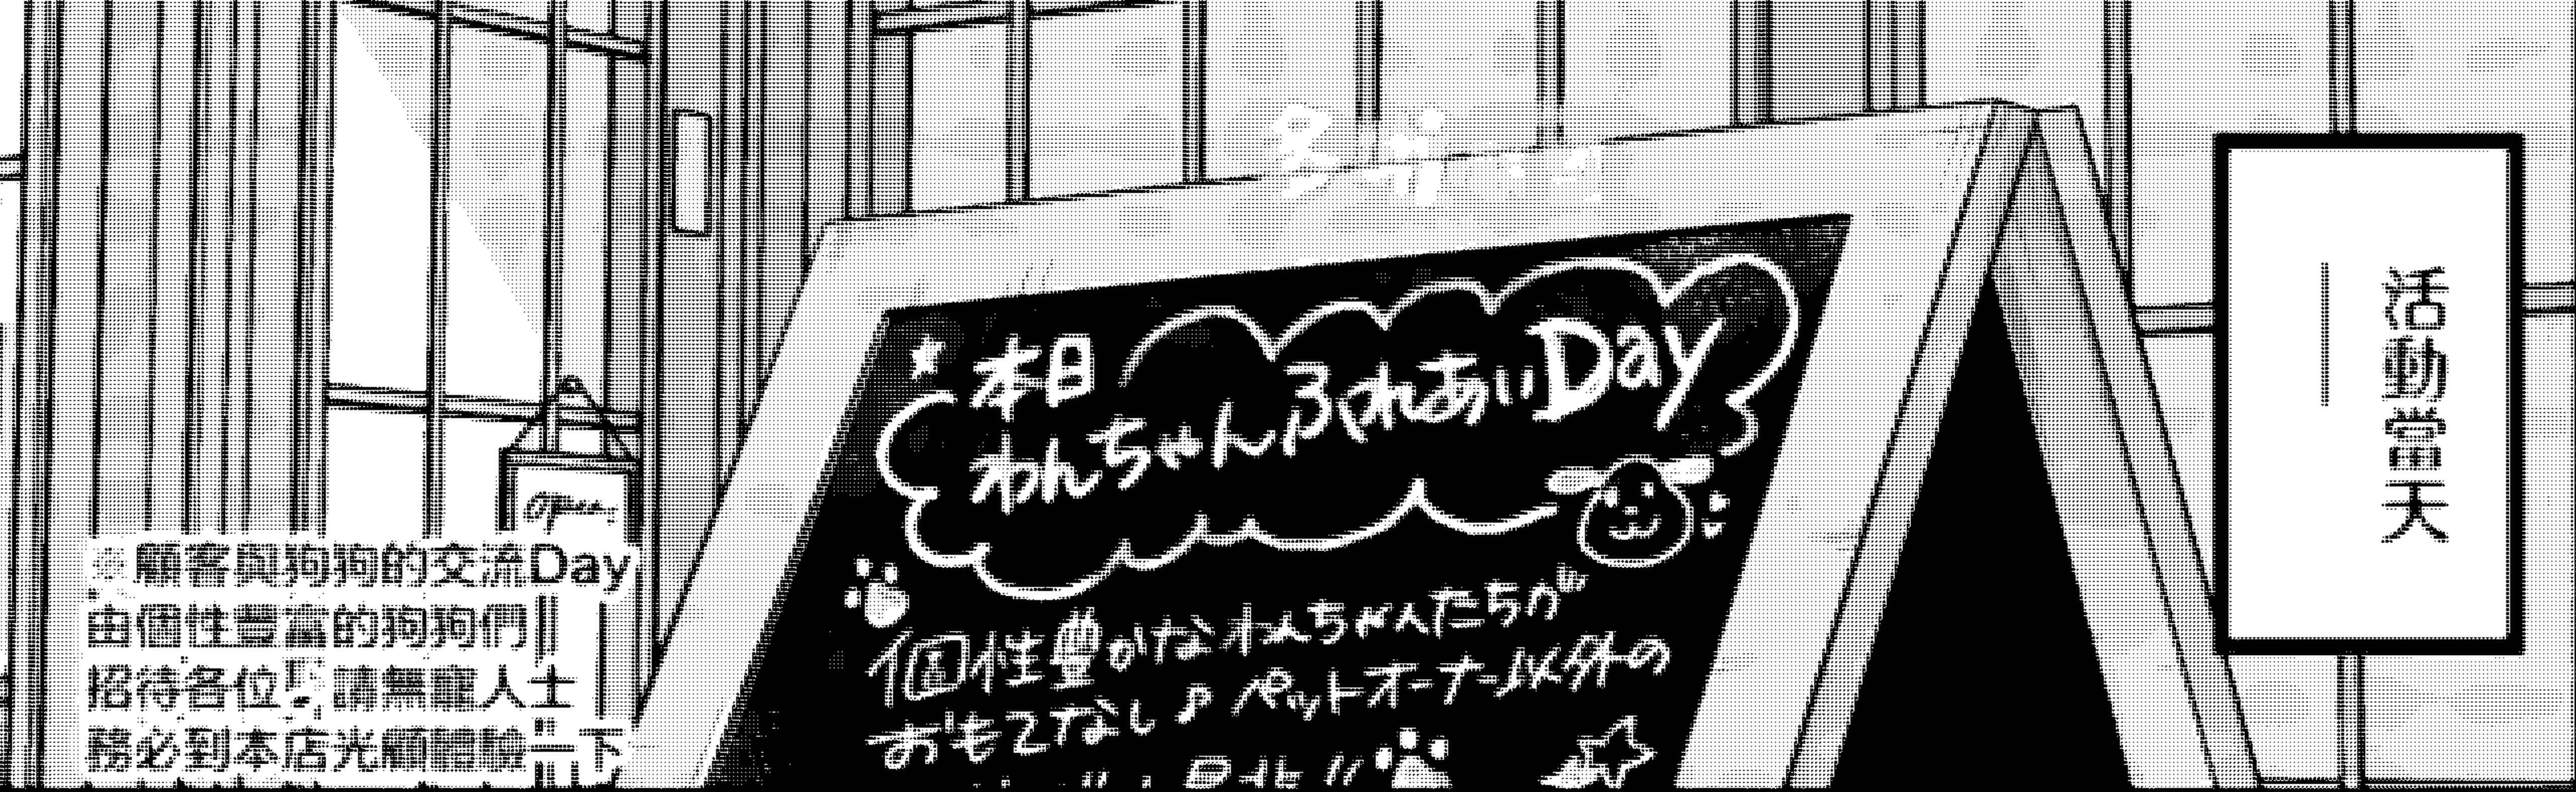 活動當天
──
本日
わんちゃんふれあいDay
個性豊かなわんちゃんたちが
おもてなし♪ペットオーナー以外の
※顧客與狗狗的交流Day
由個性豐富的狗狗們
招待各位♪請無寵人士
務必到本店光顧體驗一下